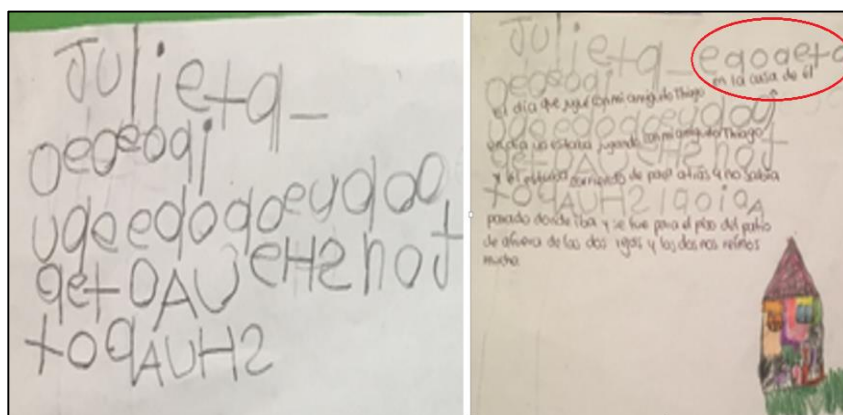 Julieta_
oedeoqi
uqeedoqoeuqoo
qetOAUeH2not
toqAUH2
Julieta_
en la casa de él
el día que jugué con mi amiguito Thiago
un día yo estaba jugando con mi amiguito Thiago
y él estaba corriendo de para atrás y no sabía
donde iba y se fue para el piso del patio
de afuera de las dos y los dos nos reímos
mucho